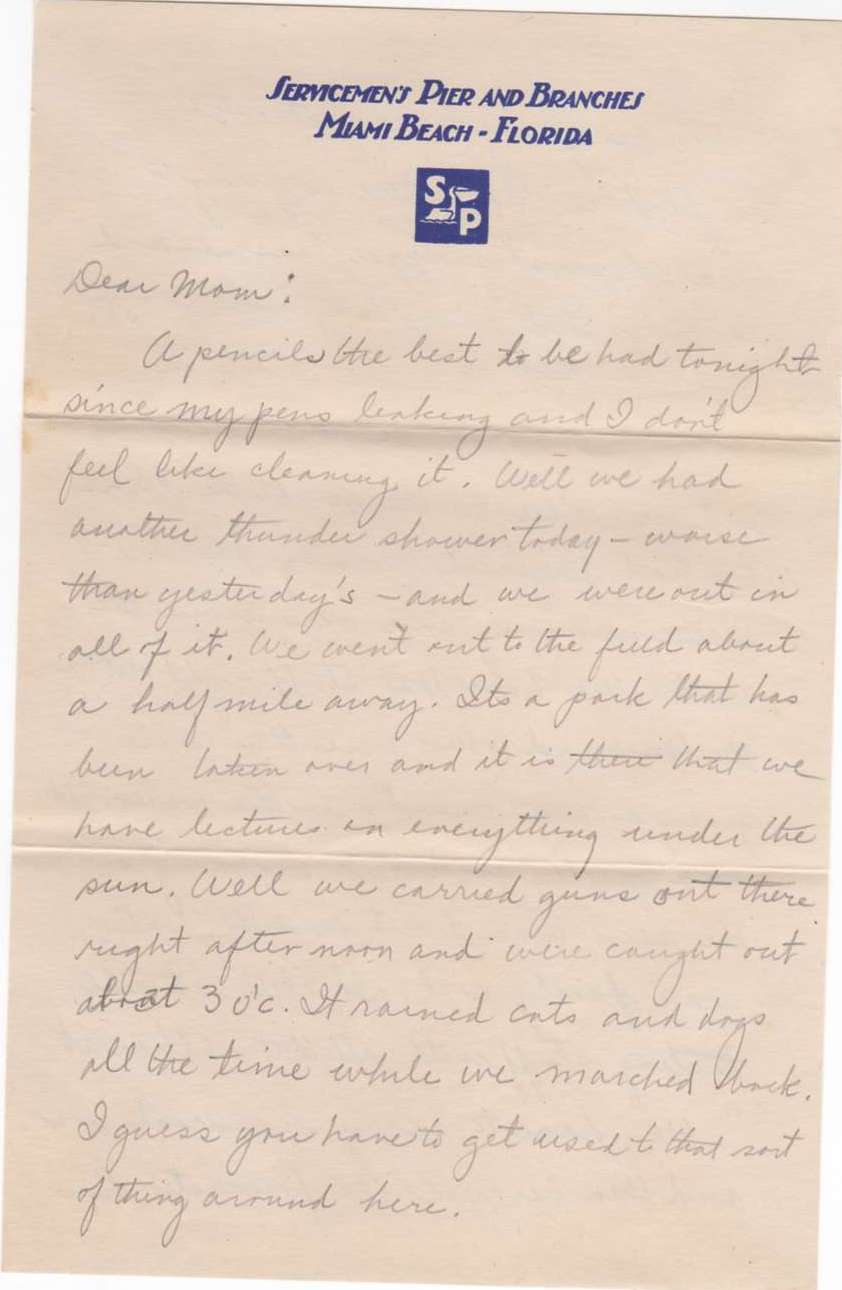 SERVICEMEN'S PIER AND BRANCHES
MIAMI BEACH - FLORIDA
S P
Dear Mom:
A pencils the best to be had tonight
since my pens leaking and I don't
feel like cleaning it. Well we had
another thunder shower today - worse
than yesterday's - and we were out in
all of it. We went out to the field about
a half mile away. Its a park that has
been taken over and it is there that we
have lectures on everything under the
sun. Well we carried guns out there
right after noon and were caught out
about 3 o'c. It rained cats and dogs
all the time while we marched back.
I guess you have to get used to that sort
of thing around here.